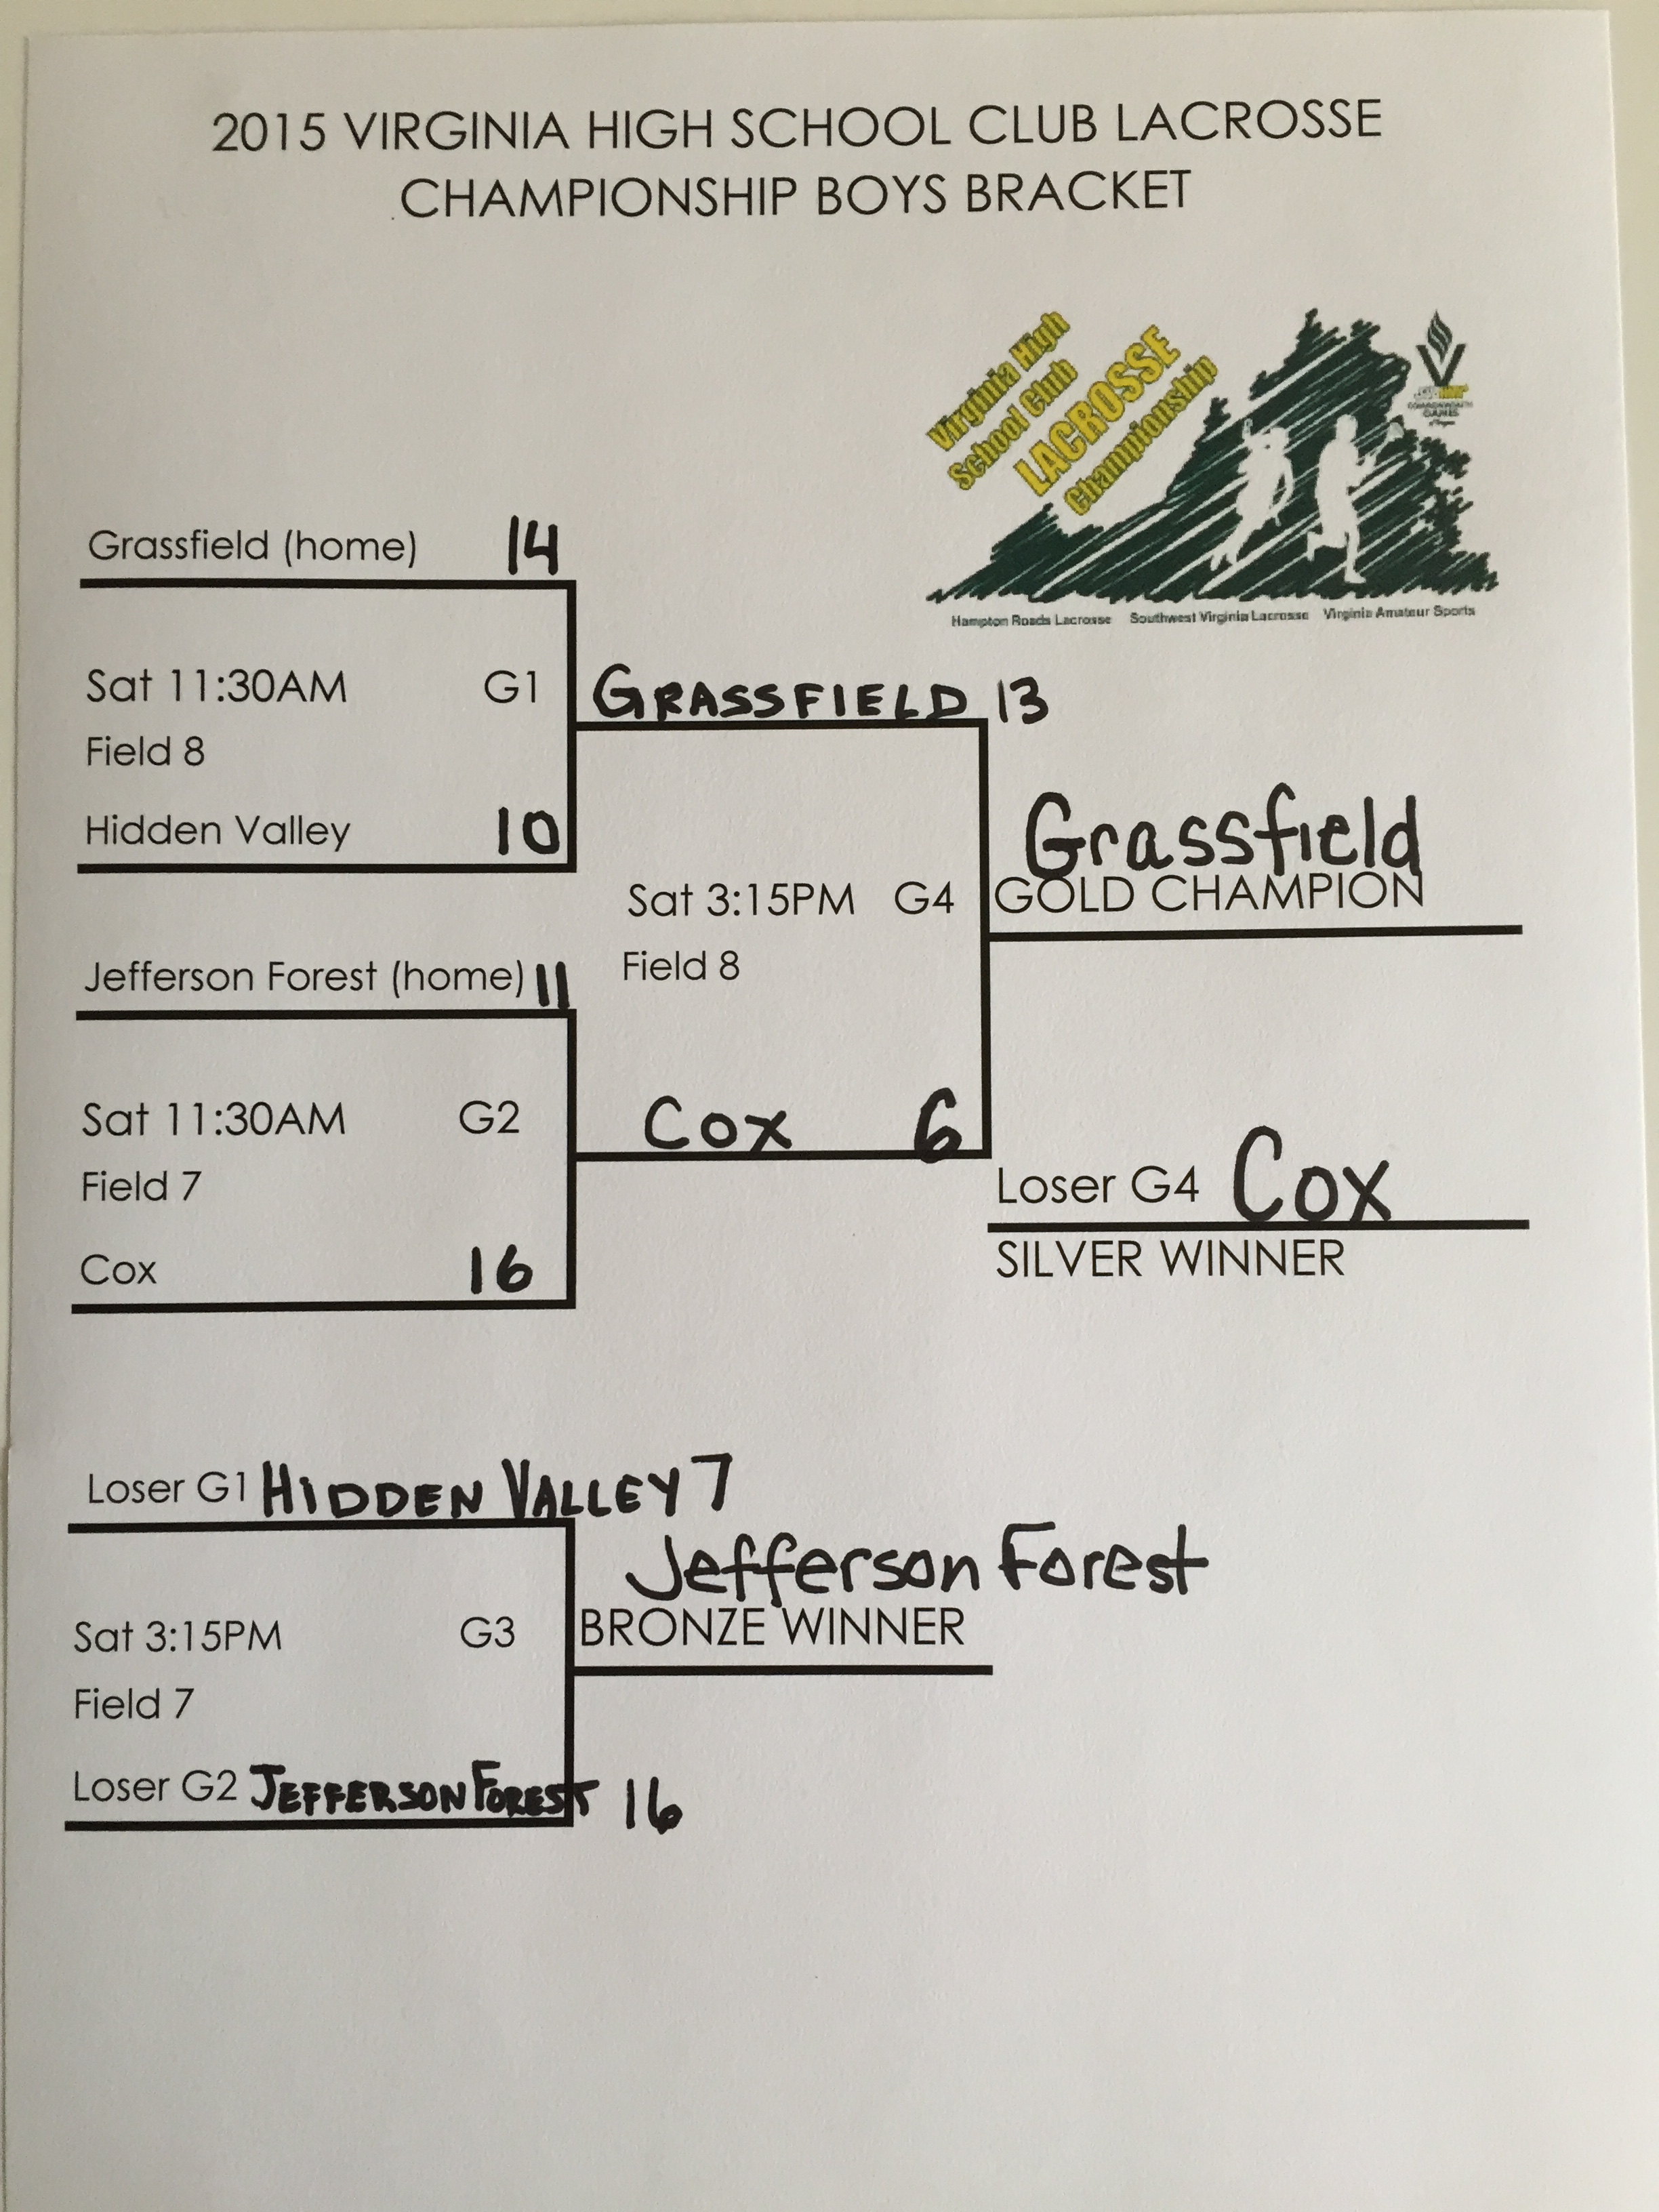 2015 VIRGINIA HIGH SCHOOL CLUB LACROSSE
CHAMPIONSHIP BOYS BRACKET
Virginia High
School Club
LACROSSE
Championship
COMMONWEALTH
GAMES
Hampton Roads Lacrosse Southwest Virginia Lacrosse Virginia Amateur Sports
Grassfield (home) 14
Sat 11:30AM G1
Field 8
Hidden Valley 10
GRASSFIELD 13
Jefferson Forest (home) 11
Sat 11:30AM G2
Field 7
Cox 16
Sat 3:15PM G4
Field 8
Cox 6
Grassfield
GOLD CHAMPION
Loser G4 Cox
SILVER WINNER
Loser G1 HIDDEN VALLEY 7
Sat 3:15PM G3
Field 7
Loser G2 JEFFERSON FOREST 16
Jefferson Forest
BRONZE WINNER